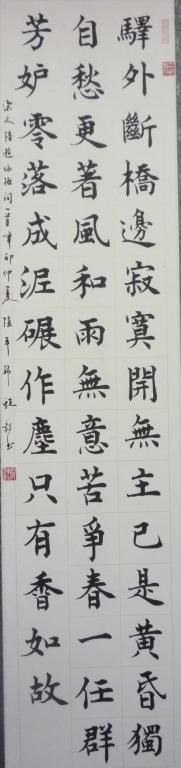 驛外斷橋邊寂寞開無主已是黃昏獨
自愁更著風和雨無意苦爭春一任群
芳妒零落成泥碾作塵只有香如故
宋人陸遊詠梅詞一首辛卯仲夏